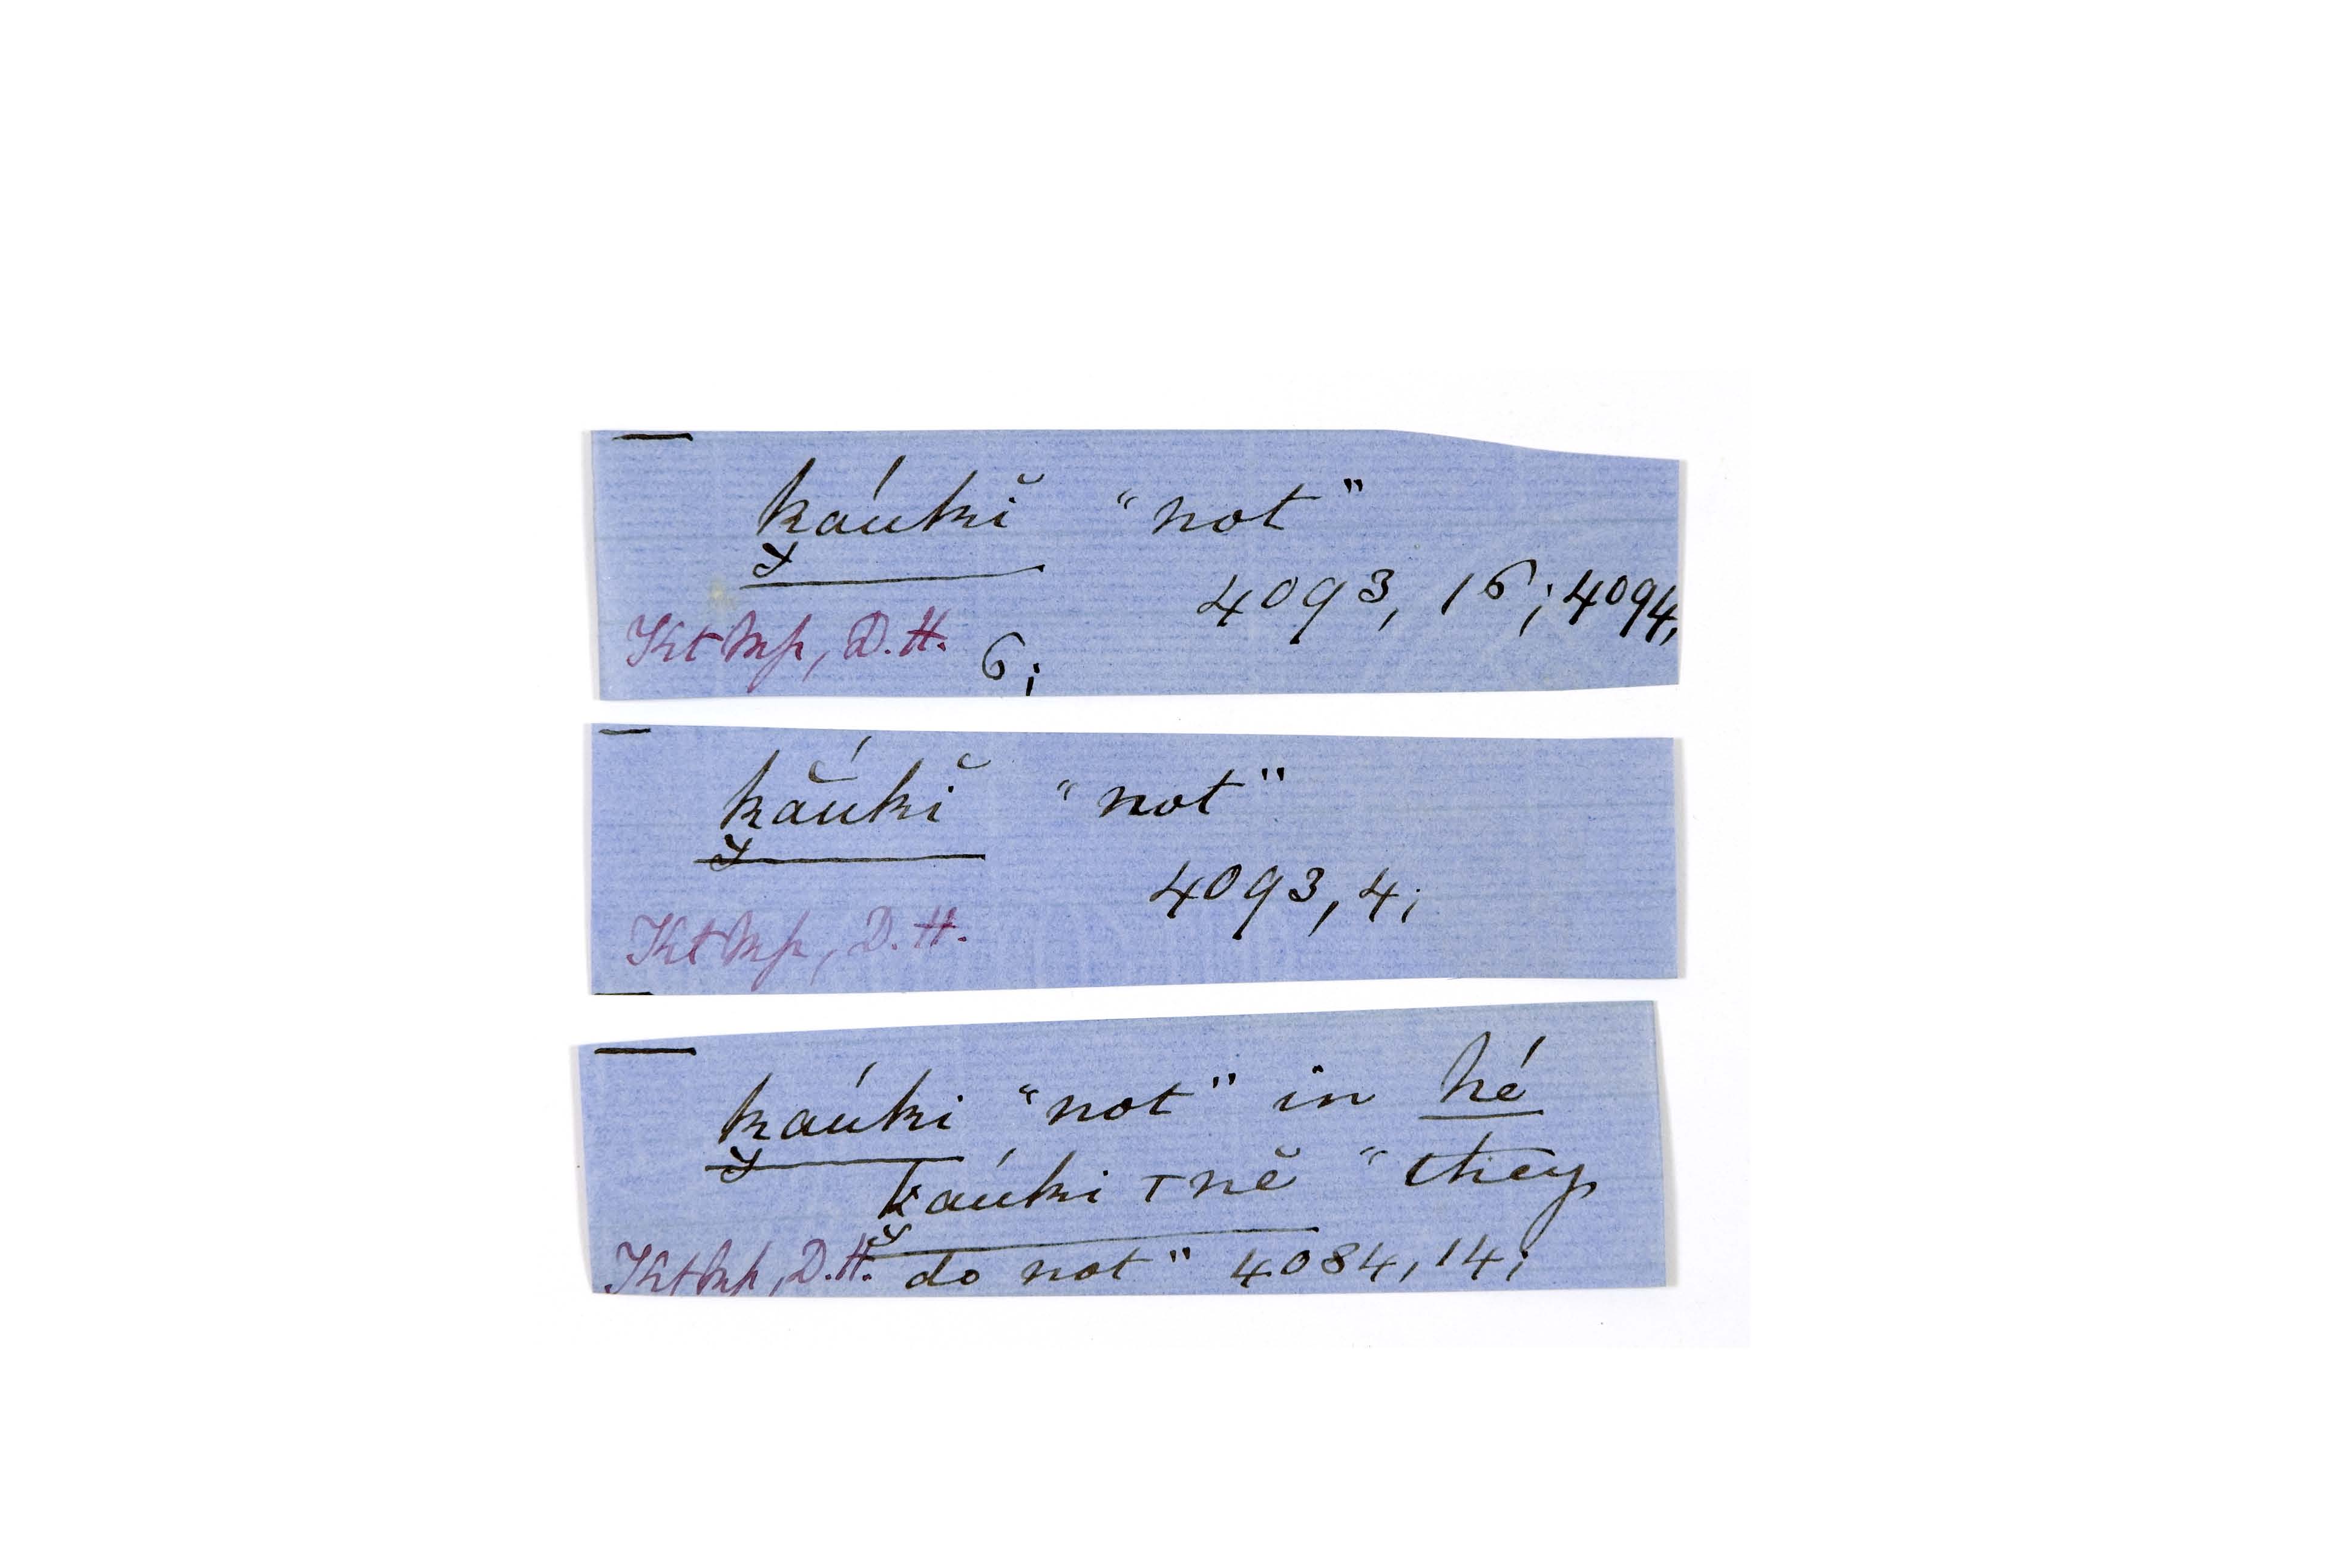 k̬áukĭ "not"
4093, 16; 4094,
Kt Mp, D.H. 6;
k̬ắukĭ "not"
4093, 4;
Kt Mp, D.H.
k̬aúki "not" in hé
k̬aúki тnĕ "they
Kt Mp, D.H. do not" 4084, 14;